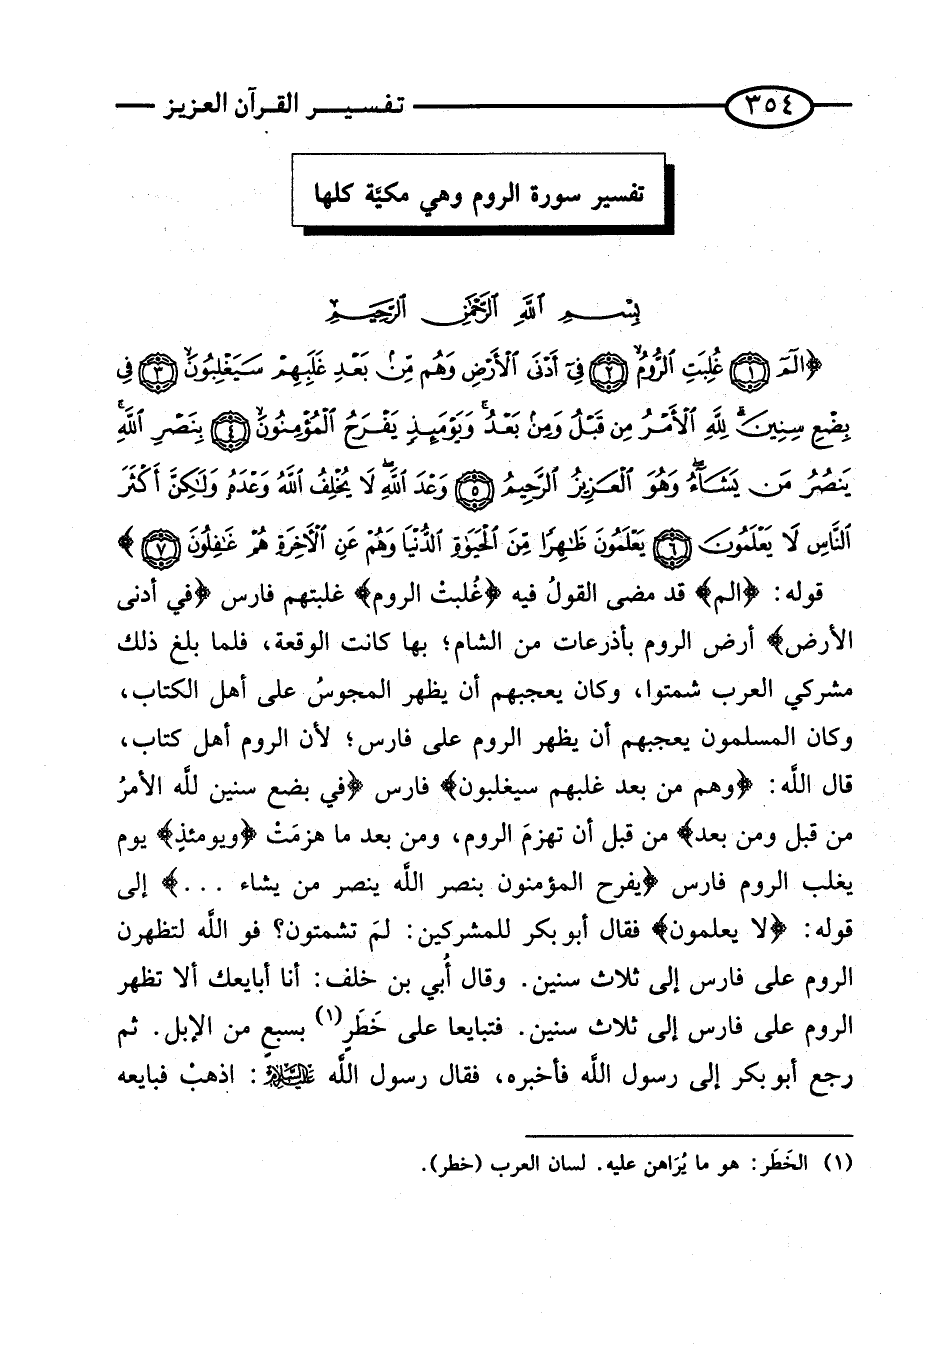 ٣٥٤ تفسير القرآن العزيز
تفسير سورة الروم وهي مكيَّة كلها
بِسْمِ اللَّهِ الرَّحْمَٰنِ الرَّحِيمِ
﴿الٓمٓ ۝١ غُلِبَتِ الرُّومُ ۝٢ فِىٓ أَدْنَى ٱلْأَرْضِ وَهُم مِّنۢ بَعْدِ غَلَبِهِمْ سَيَغْلِبُونَ ۝٣ فِى
بِضْعِ سِنِينَ ۗ لِلَّهِ ٱلْأَمْرُ مِن قَبْلُ وَمِنۢ بَعْدُ ۚ وَيَوْمَئِذٍ يَفْرَحُ ٱلْمُؤْمِنُونَ ۝٤ بِنَصْرِ ٱللَّهِ ۚ
يَنصُرُ مَن يَشَآءُ ۖ وَهُوَ ٱلْعَزِيزُ ٱلرَّحِيمُ ۝٥ وَعْدَ ٱللَّهِ ۖ لَا يُخْلِفُ ٱللَّهُ وَعْدَهُۥ وَلَٰكِنَّ أَكْثَرَ
ٱلنَّاسِ لَا يَعْلَمُونَ ۝٦ يَعْلَمُونَ ظَٰهِرًا مِّنَ ٱلْحَيَوٰةِ ٱلدُّنْيَا وَهُمْ عَنِ ٱلْءَاخِرَةِ هُمْ غَٰفِلُونَ ۝٧ ﴾
قوله: ﴿الم﴾ قد مضى القولُ فيه ﴿غُلبتْ الروم﴾ غلبتهم فارس ﴿في أدنى
الأرض﴾ أرض الروم بأذرعات من الشام؛ بها كانت الوقعة، فلما بلغ ذلك
مشركي العرب شمتوا، وكان يعجبهم أن يظهر المجوسُ على أهل الكتاب،
وكان المسلمون يعجبهم أن يظهر الروم على فارس؛ لأن الروم أهل كتاب،
قال اللَّه: ﴿وهم من بعد غلبهم سيغلبون﴾ فارس ﴿في بضع سنين للَّه الأمرُ
من قبل ومن بعد﴾ من قبل أن تهزمَ الروم، ومن بعد ما هزمَتْ ﴿ويومئذٍ﴾ يوم
يغلب الروم فارس ﴿يفرح المؤمنون بنصر اللَّه ينصر من يشاء ...﴾ إلى
قوله: ﴿لا يعلمون﴾ فقال أبو بكر للمشركين: لمَ تشمتون؟ فو اللَّه لتظهرن
الروم على فارس إلى ثلاث سنين. وقال أُبي بن خلف: أنا أبايعك ألا تظهر
الروم على فارس إلى ثلاث سنين. فتبايعا على خَطَرٍ(١) بسبعٍ من الإبل. ثم
رجع أبو بكر إلى رسول اللَّه فأخبره، فقال رسول اللَّه عليه السلام: اذهبْ فبايعه
(١) الخَطَر: هو ما يُرَاهن عليه. لسان العرب (خطر).